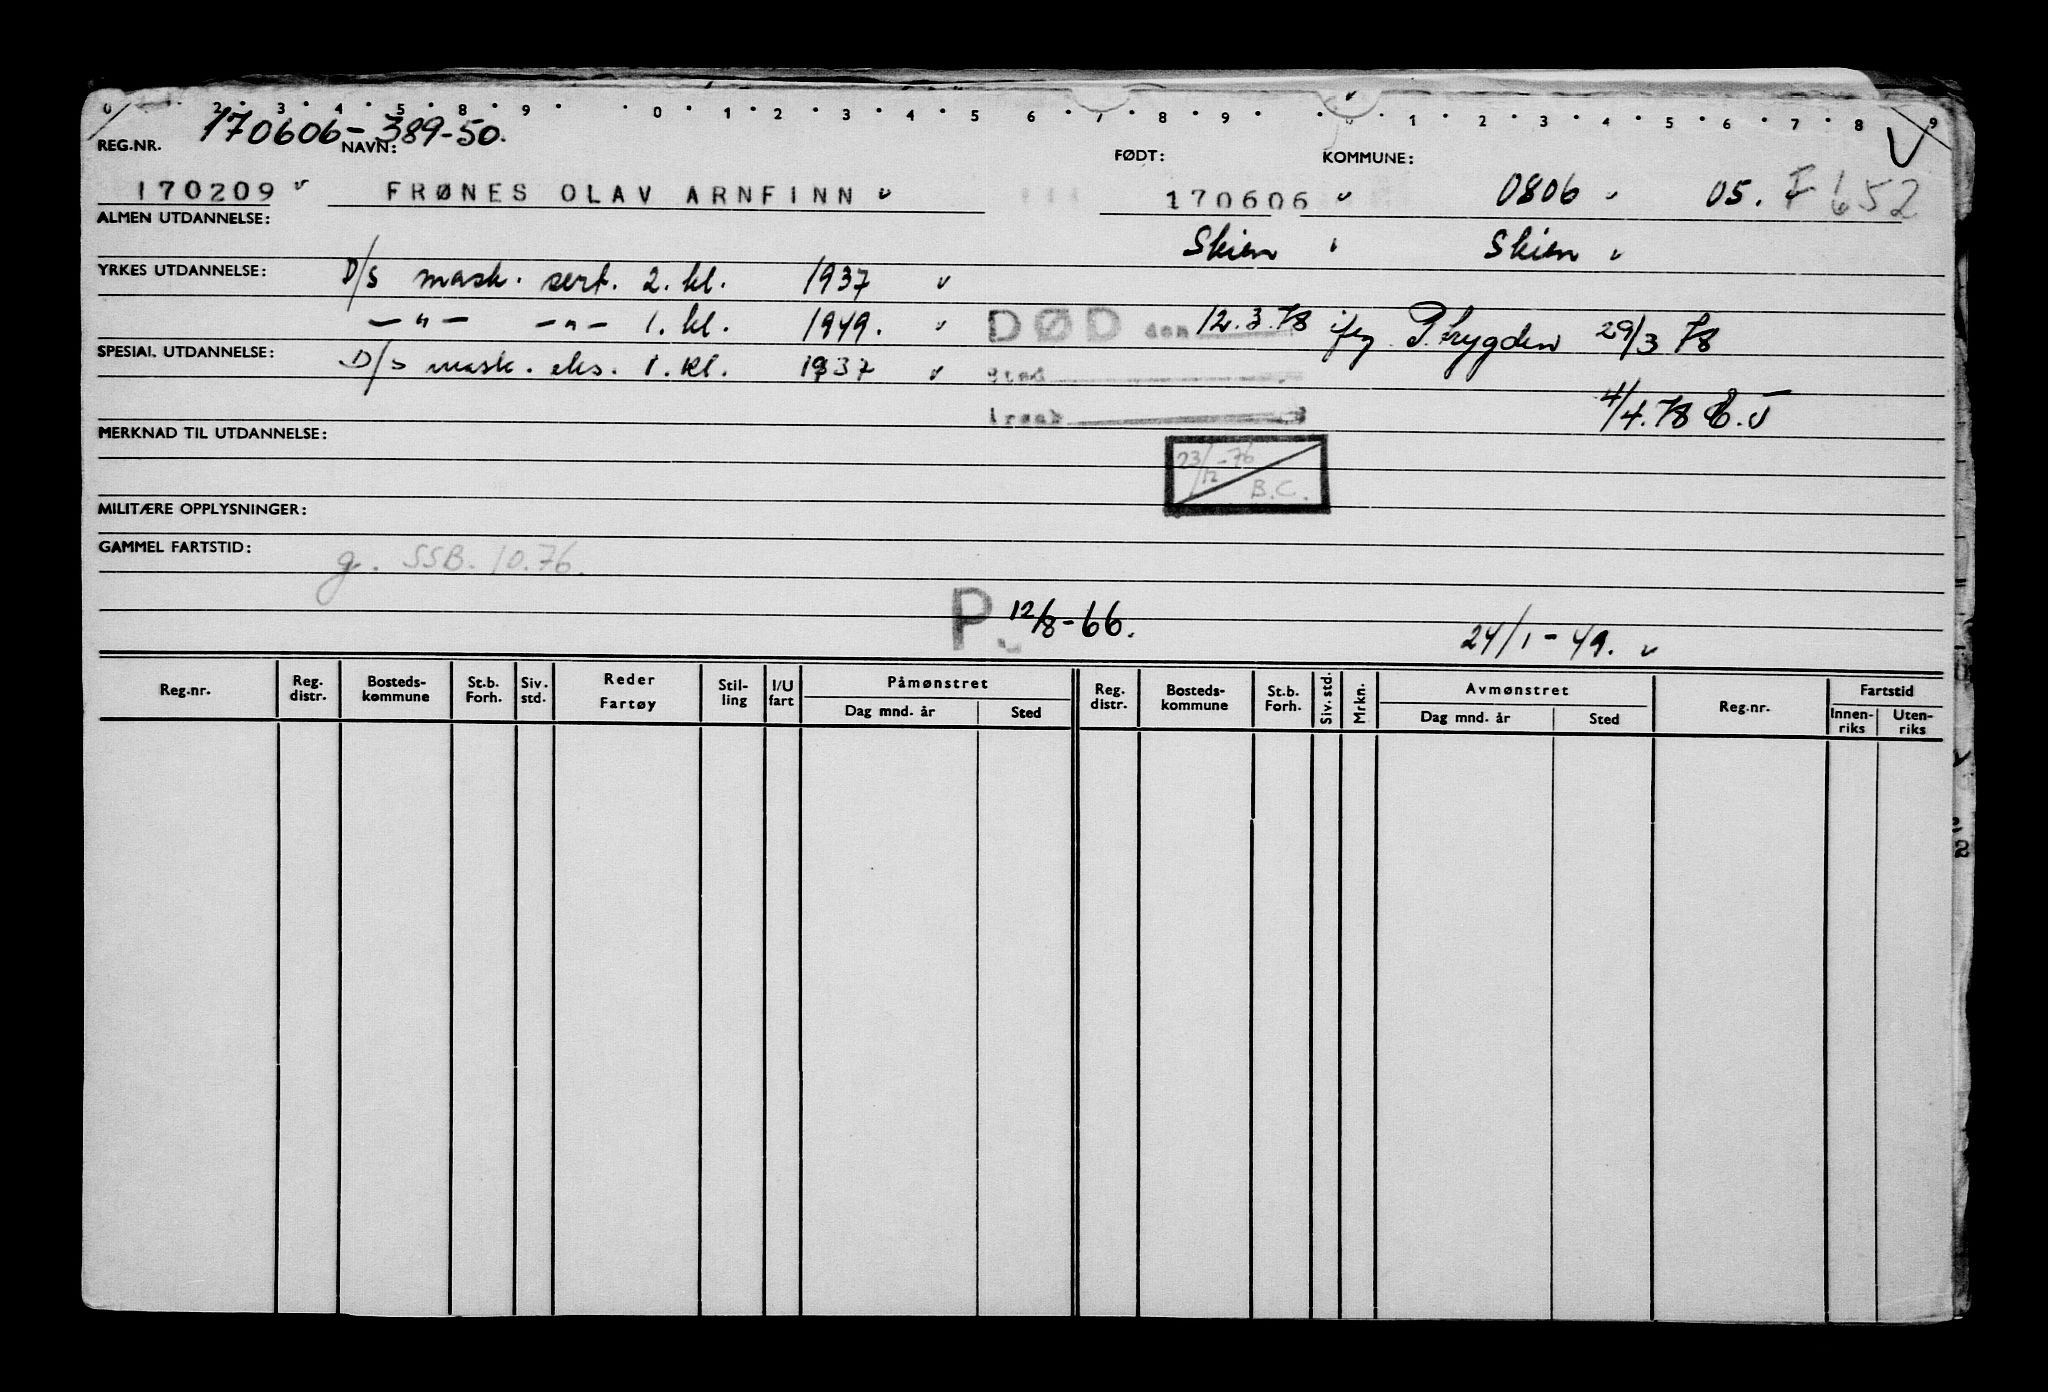 0 2 3 4 5 8 9 0 1 2 3 4 5 6 7 8 9 0 1 2 3 4 5 6 7 8 9
170606-389-50.
REG.NR. NAVN: FØDT: KOMMUNE:
170209 FRØNES OLAV ARNFINN 170606 0806 05. F 652
ALMEN UTDANNELSE: Skien Skien
YRKES UTDANNELSE: D/s mask. sert. 2. kl. 1937
—"— —"— 1. kl. 1949. DØD den 12.3.78 ifg. P.trygden 29/3 78
SPESIAL UTDANNELSE: D/s mask. eks. 1. kl. 1937 Sted
Årsak 4/4.78
MERKNAD TIL UTDANNELSE:
23/12-76 B.C.
MILITÆRE OPPLYSNINGER:
GAMMEL FARTSTID: g. SSB. 10.76.
P. 12/8-66. 24/1-49.
Reg.nr. Reg. distr. Bosteds-kommune St.b. Forh. Siv. std. Reder Fartøy Stil-ling I/U fart Påmønstret Dag mnd. år Sted Reg. distr. Bosteds-kommune St.b. Forh. Siv. std. Mrkn. Avmønstret Dag mnd. år Sted Reg.nr. Fartstid Innen-riks Uten-riks